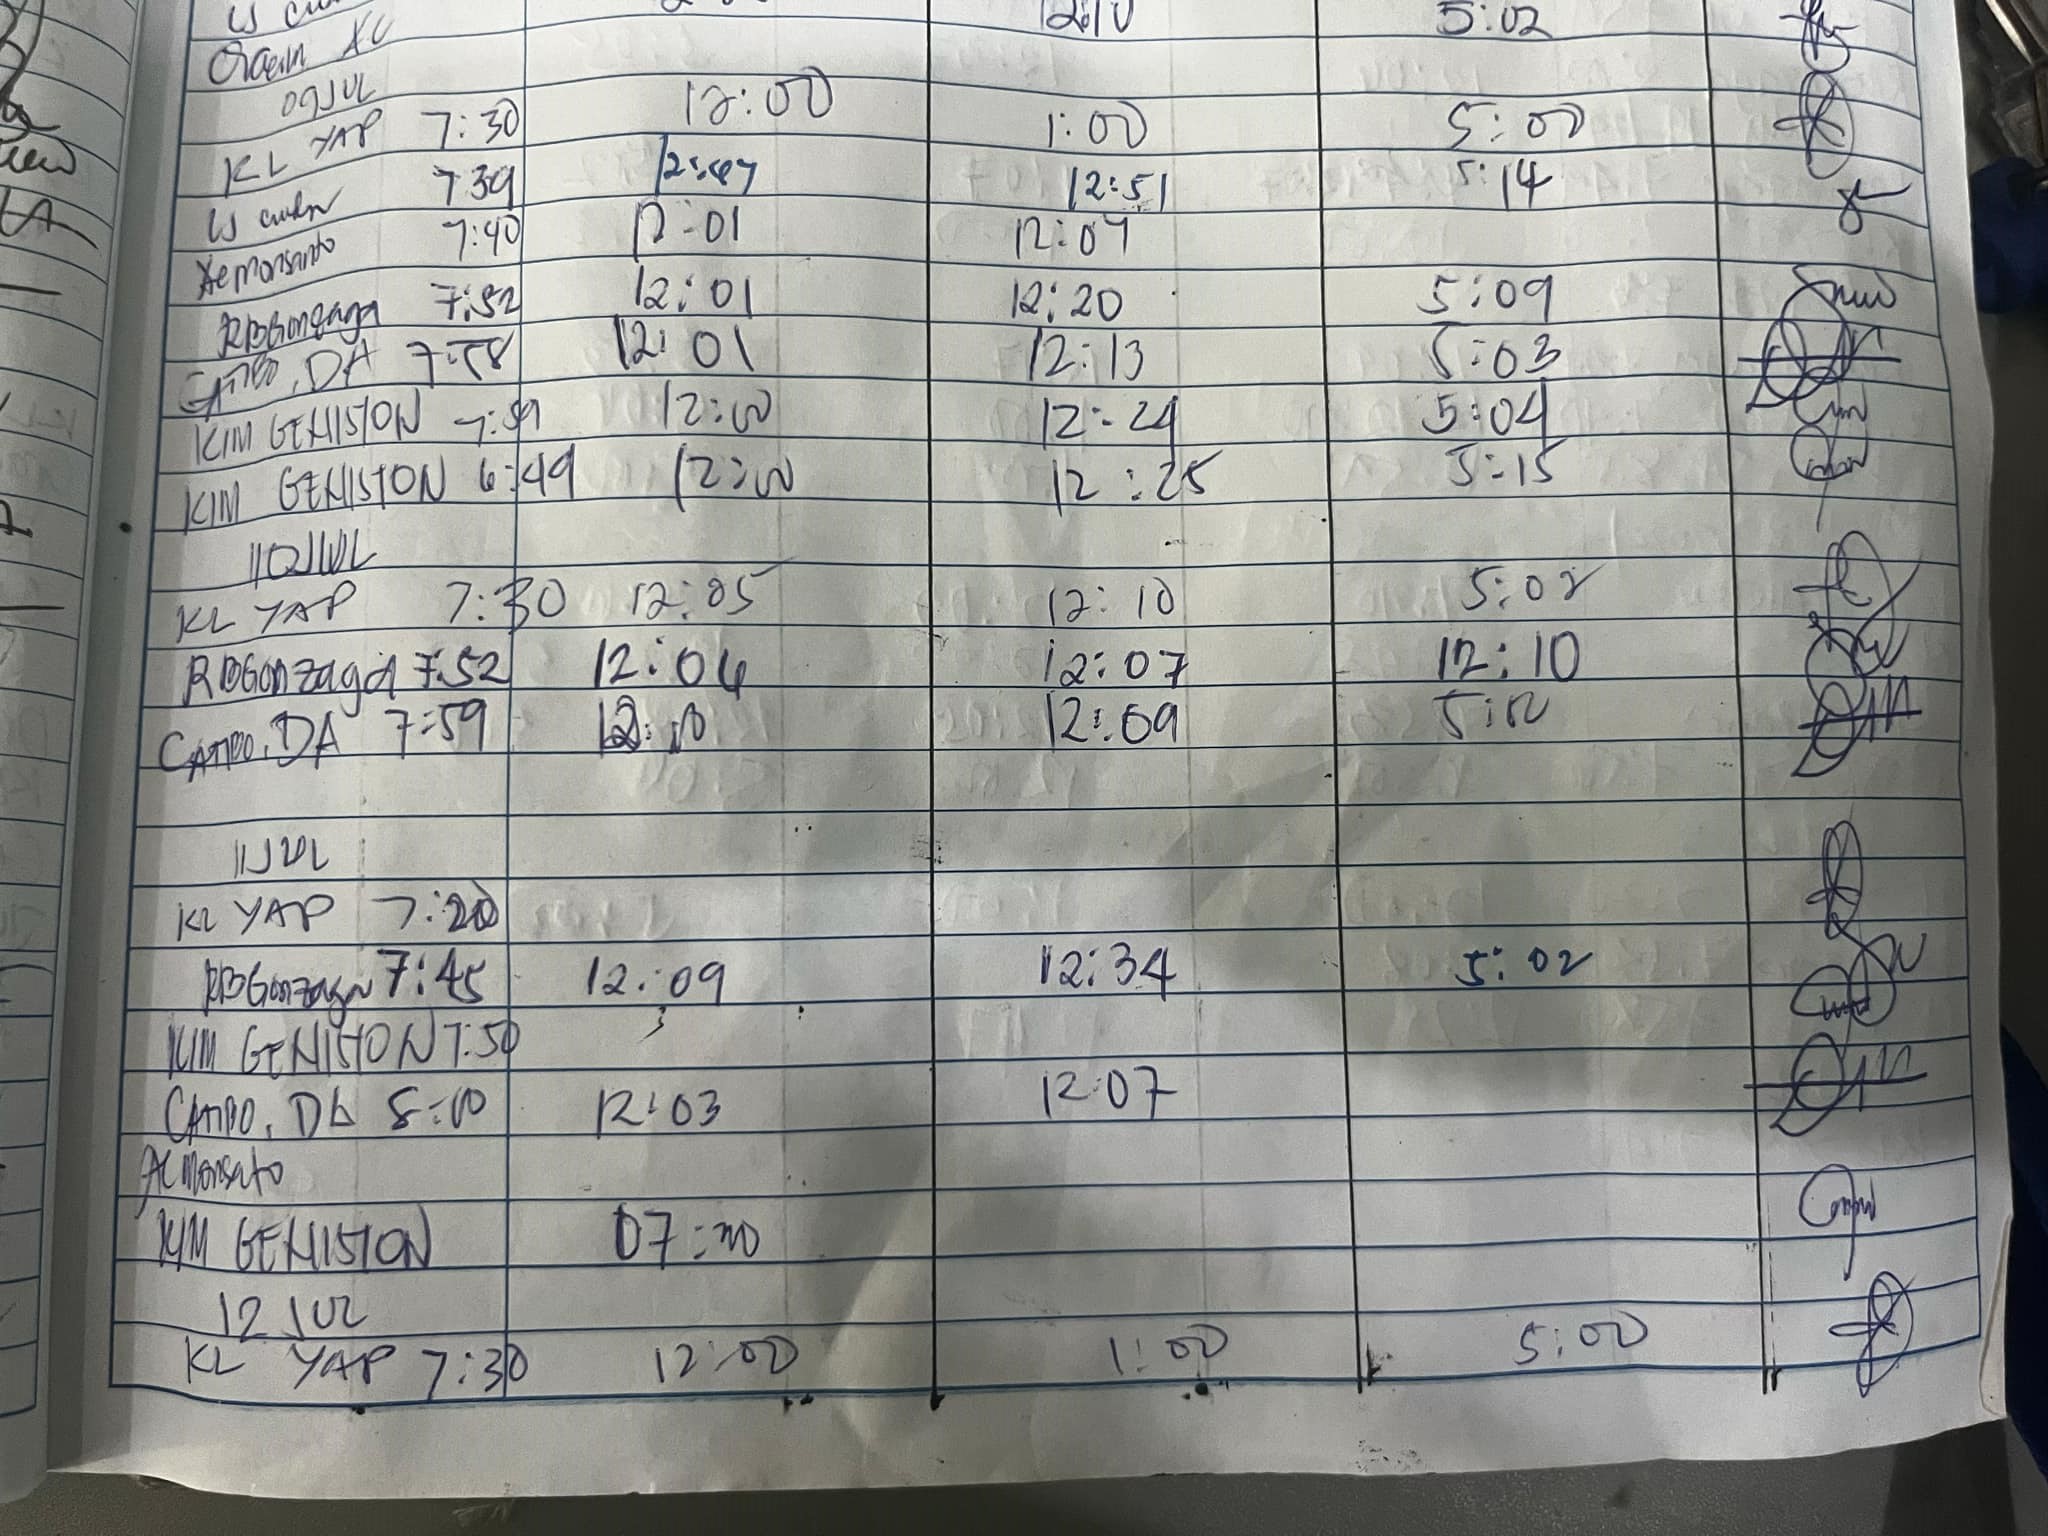 12:10 5:02
09JUL
KL YAP 7:30 12:00 1:00 5:00
7:39 12:51 5:14
Acmonsanto 7:40 12:01 12:07
RBGonzaga 7:52 12:01 12:20 5:09
CAMPO, DA 7:58 12:01 12:13 5:03
KIM GENISTON 7:59 12:00 12:24 5:04
KIM GENISTON 6:49 12:00 12:25 5:15
KL YAP 7:30 12:05 12:10 5:02
RBGonzaga 7:52 12:04 12:07 12:10
CAMPO, DA 7:59 12:09
11JUL
KL YAP 7:20
RBGonzaga 7:45 12:09 12:34 5:02
KIM GENISTON 7:50
CAMPO, DA 8:00 12:03 12:07
Acmonsato
KIM GENISTON
12 JUL
KL YAP 7:30 12:00 1:00 5:00